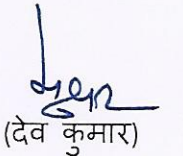 (देव कुमार)